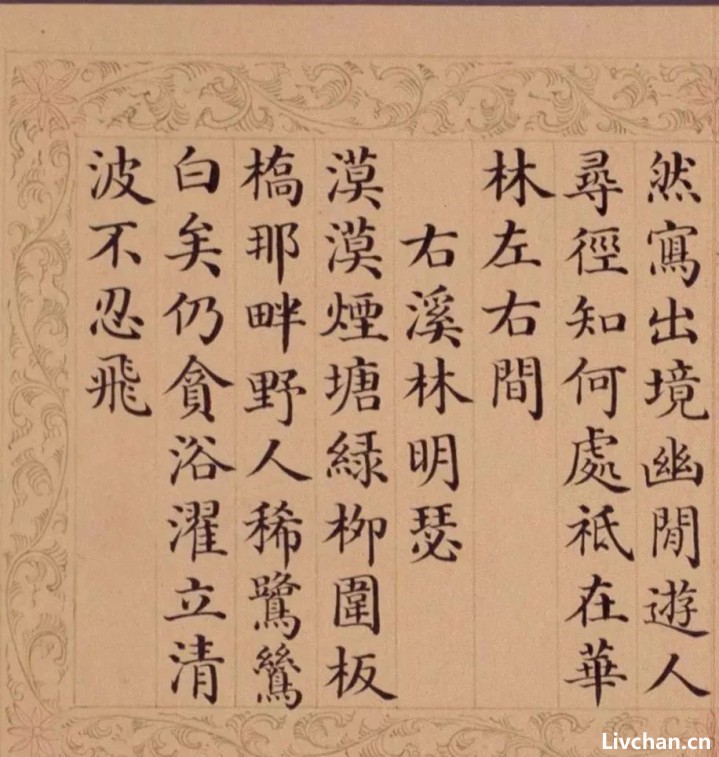 然寫出境幽閒遊人
尋徑知何處祗在華
林左右間
右溪林明瑟
漠漠煙塘綠柳圍板
槗那畔野人稀鷺鷥
白矣仍貪浴濯立清
波不忍飛
Livchan.cn